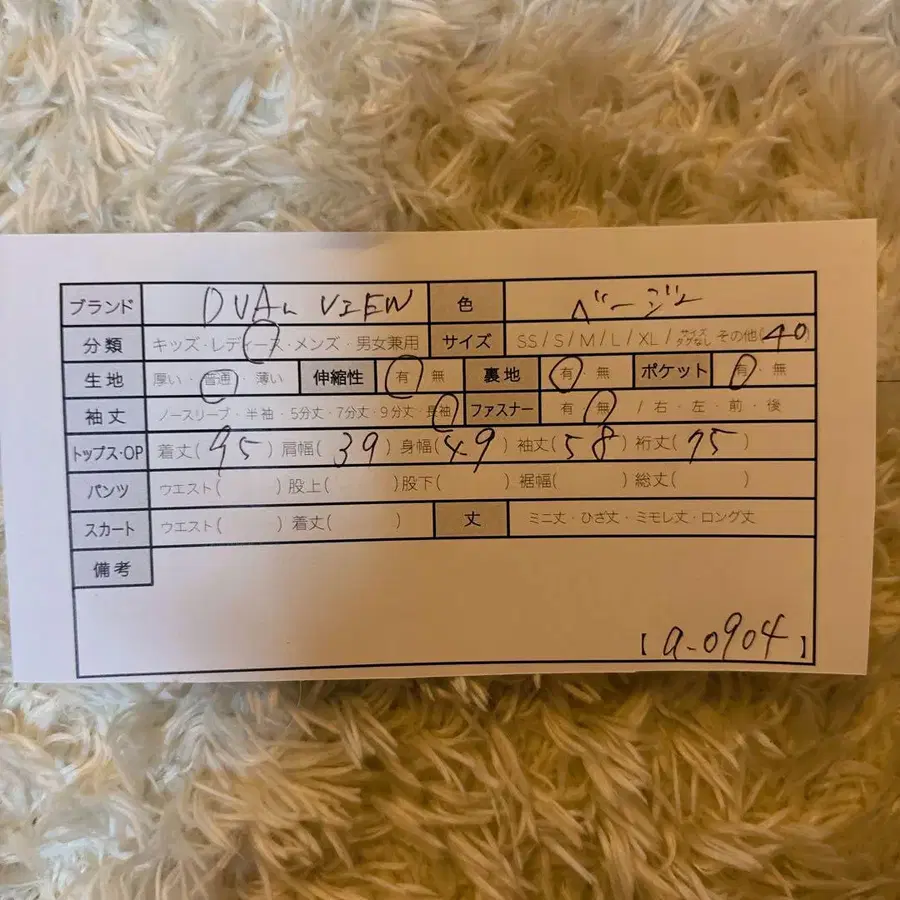 ブランド DUAL VIEW 色 ベージュ
分類 キッズ・レディース・メンズ・男女兼用 サイズ SS/S/M/L/XL/サイズタグなし その他(40)
生地 厚い・普通・薄い 伸縮性 有・無 裏地 有・無 ポケット 有・無
袖丈 ノースリーブ・半袖・5分丈・7分丈・9分丈・長袖 ファスナー 有・無 /右・左・前・後
トップス・OP 着丈(95) 肩幅(39) 身幅(49) 袖丈(58) 裄丈(75)
パンツ ウエスト( ) 股上( ) 股下( ) 裾幅( ) 総丈( )
スカート ウエスト( ) 着丈( ) 丈 ミニ丈・ひざ丈・ミモレ丈・ロング丈
備考
【a-0904】